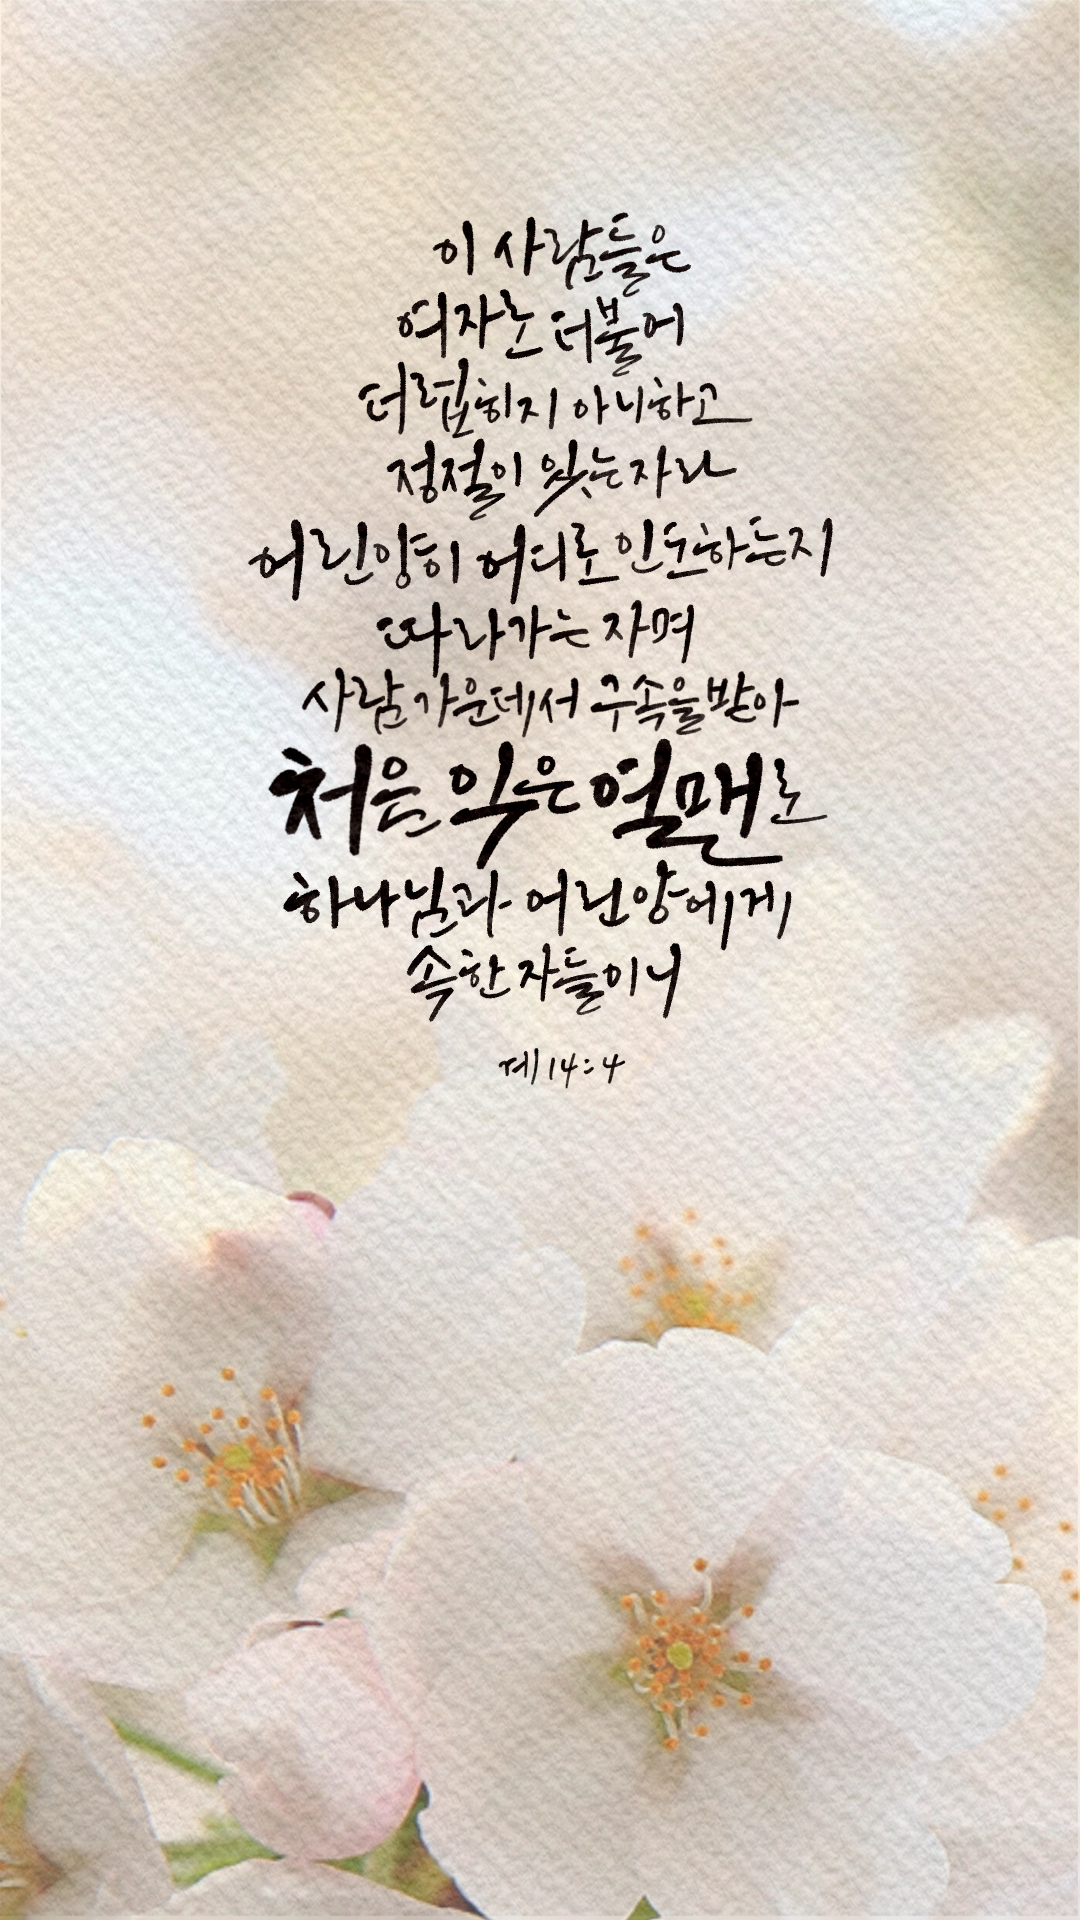 이 사람들은
여자로 더불어
더럽히지 아니하고
정절이 있는 자라
어린양이 어디로 인도하든지
따라가는 자며
사람 가운데서 구속을 받아
처음 익은 열매로
하나님과 어린양에게
속한 자들이니
계 14:4